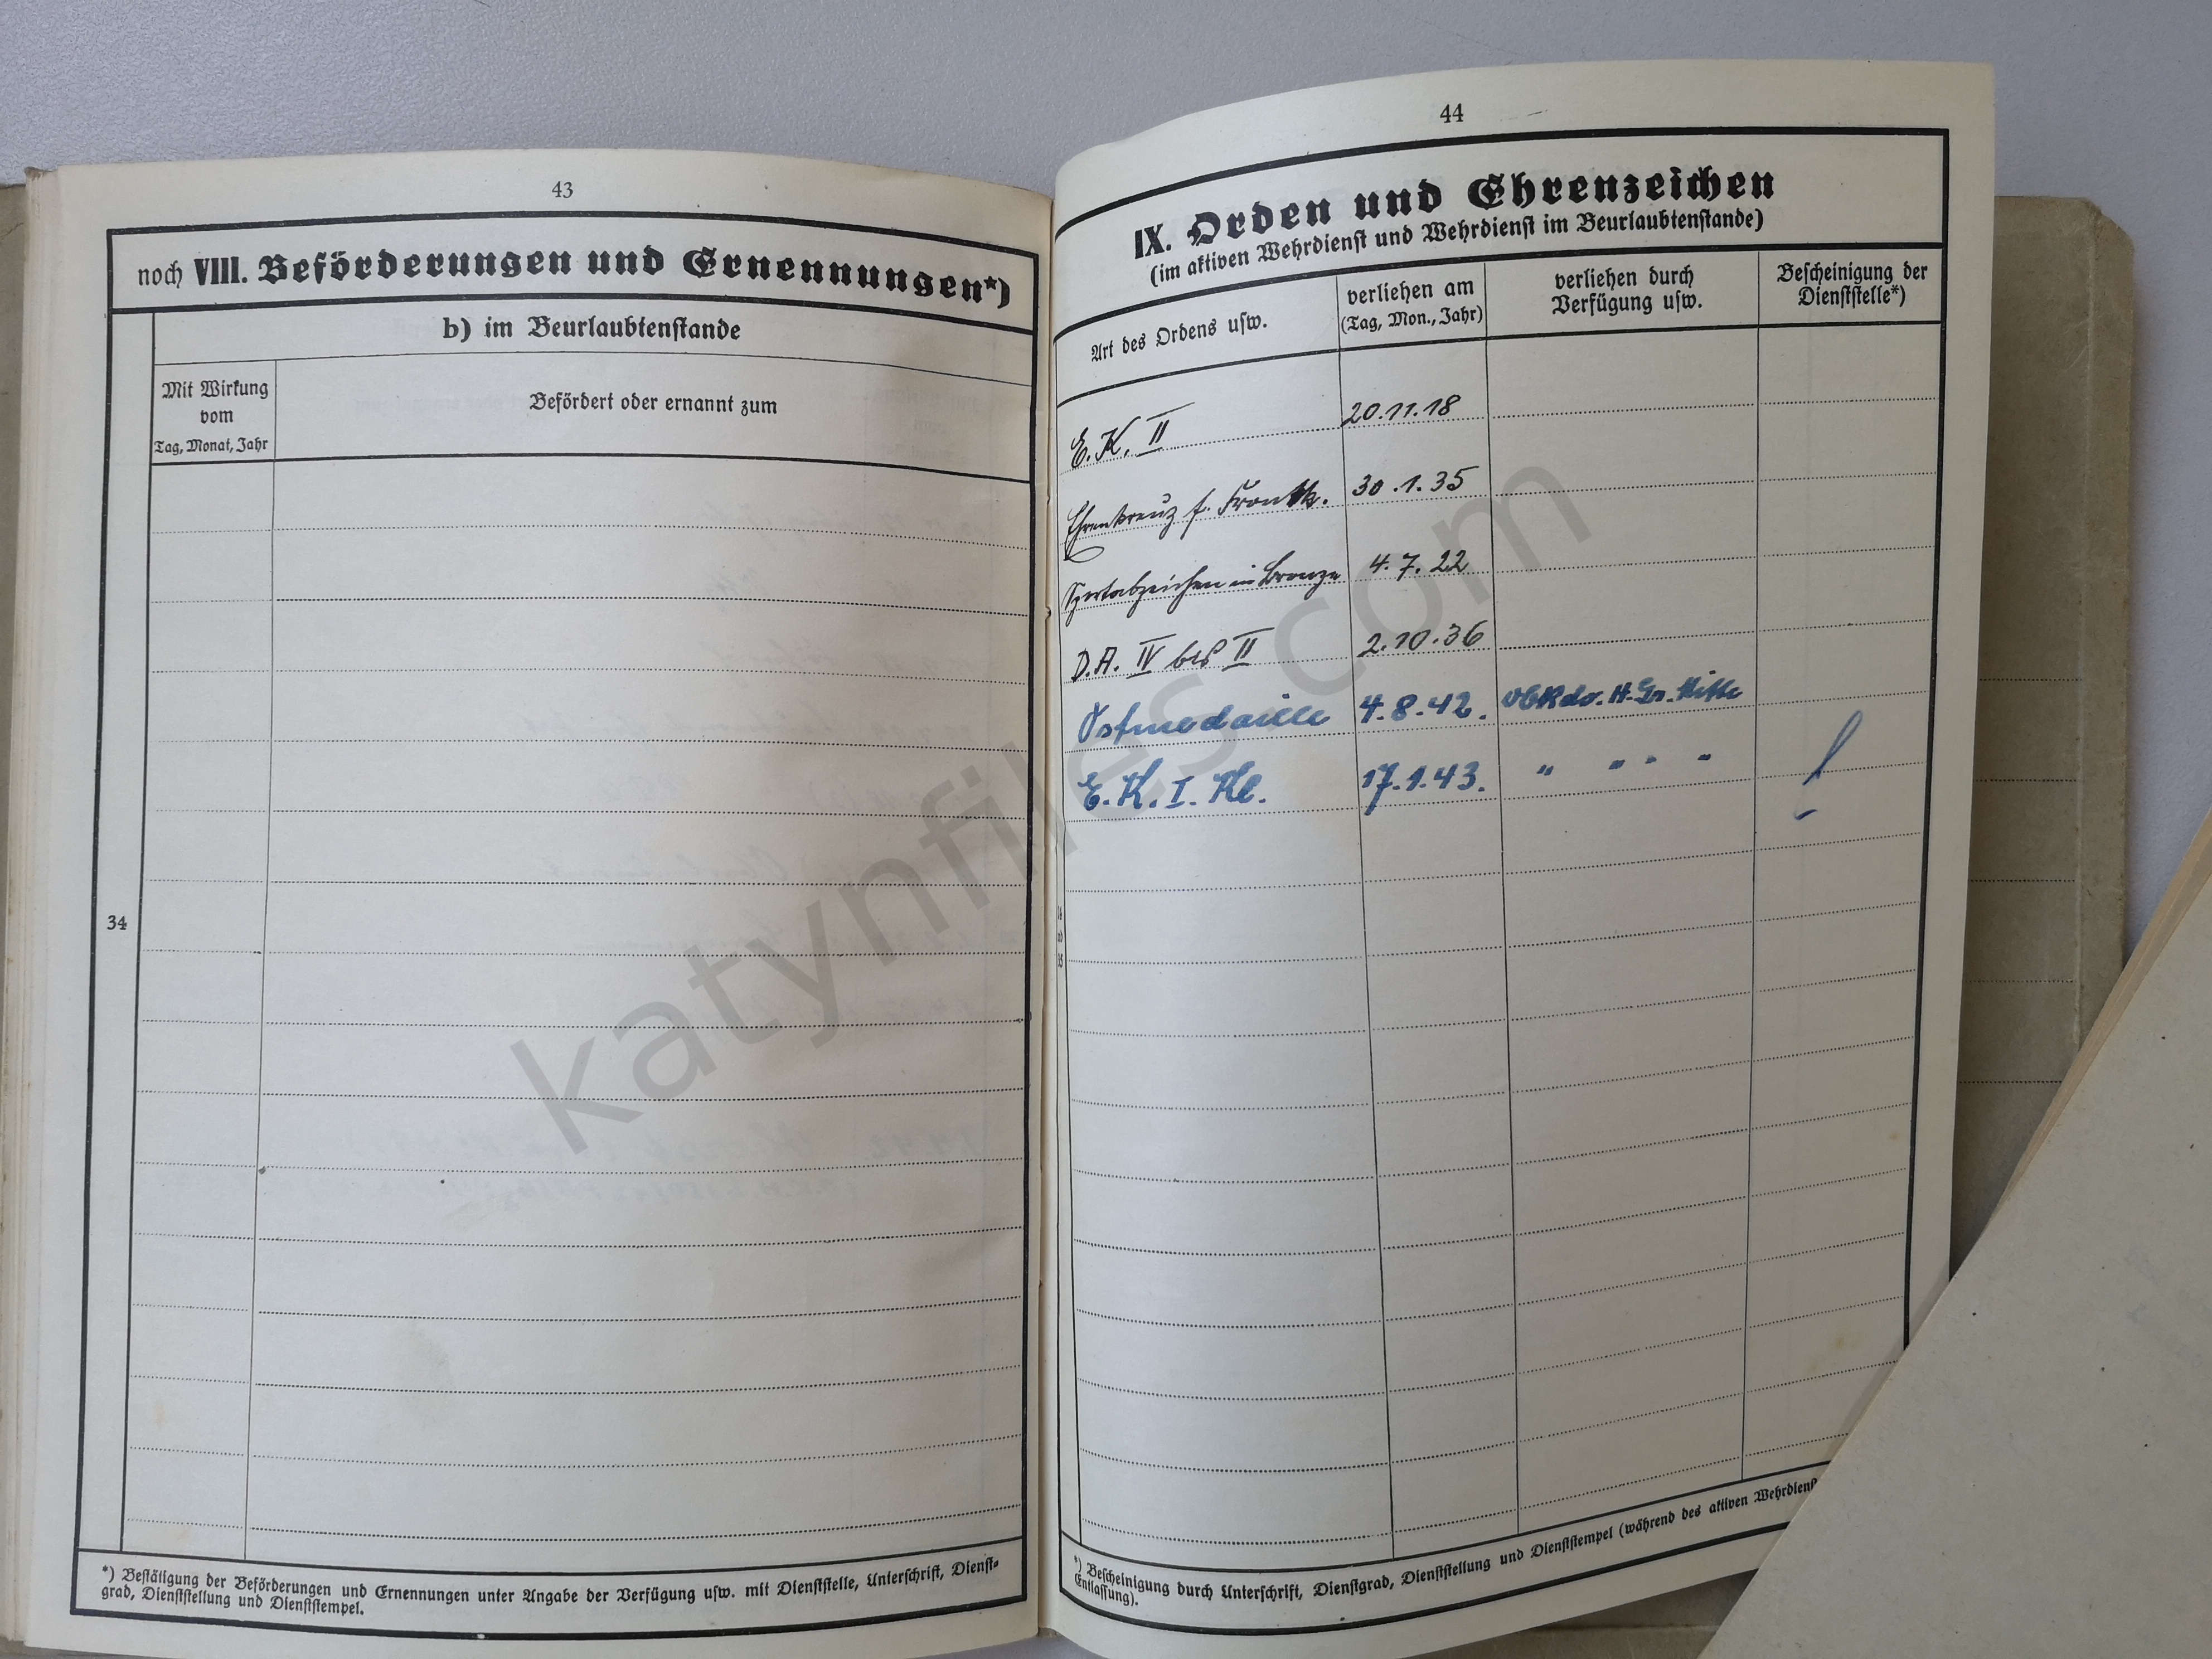 43
noch VIII. Beförderungen und Ernennungen*)
b) im Beurlaubtenstande
Mit Wirkung
vom
Tag, Monat, Jahr
Befördert oder ernannt zum
34
*) Bestätigung der Beförderungen und Ernennungen unter Angabe der Verfügung usw. mit Dienststelle, Unterschrift, Dienst-
grad, Dienststellung und Dienststempel.
44
IX. Orden und Ehrenzeichen
(im aktiven Wehrdienst und Wehrdienst im Beurlaubtenstande)
Art des Ordens usw.
verliehen am
(Tag, Mon., Jahr)
verliehen durch
Verfügung usw.
Bescheinigung der
Dienststelle*)
E. K. II 20.11.18
Ehrenkreuz f. Frontk. 30.1.35
Sportabzeichen in Bronze 4.7.22
D.A. IV bis II 2.10.36
Ostmedaille 4.8.42. ObKdo. H. Gr. Mitte
E. K. I. Kl. 17.1.43. " " " "
*) Bescheinigung durch Unterschrift, Dienstgrad, Dienststellung und Dienststempel (während des aktiven Wehrdienst
Entlassung).
katynfiles.com